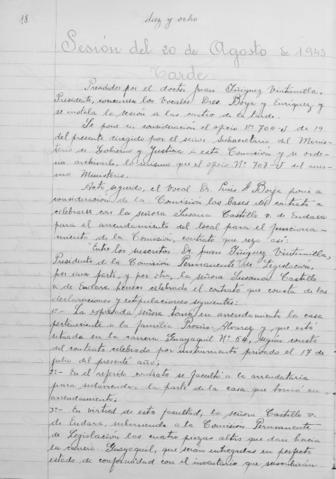 18
diez y ocho
Sesión del 20 de Agosto de 1943
Tarde
Presidida por el doctor Juan Íñiguez Vintimilla,
Presidente, concurren los Vocales Dres. Borja y Enríquez, y
se instala la sesión a las cuatro de la tarde.
Se pone en consideración el oficio Nº 700-J de 19
del presente dirigido por el señor Subsecretario del Minis-
terio de Gobierno y Justicia a esta Comisión y se orde-
na archivarlo, lo mismo que el oficio Nº 707-J del mis-
mo Ministerio.
Acto seguido, el Vocal Dr. Luis F. Borja pone a
consideración de la Comisión las bases del contrato a
celebrarse con la señora Susana Castillo v. de Endara
para el arrendamiento del local para el funciona-
miento de la Comisión, contrato que reza así:
"Entre los suscritos Dr. Juan Íñiguez Vintimilla,
Presidente de la Comisión Permanente de Legislación,
por una parte, y por otra, la señora Susana Castillo
v. de Endara, celebrado el contrato que consta de las
declaraciones y estipulaciones siguientes:
1º- La expresada señora tomó en arrendamiento la casa
perteneciente a la familia Alvarez y que está
situada en la carrera Guayaquil Nº 54, según consta
del contrato celebrado por instrumento privado el 17 de
julio del presente año.
2º- En el referido contrato se facultó a la arrendataria
para subarrendar la parte de la casa que tomó en
arrendamiento.
3º- En virtud de esta facultad, la señora Castillo v.
de Endara, subarrienda a la Comisión Permanente
de Legislación las cuatro piezas altas que dan hacia
la carrera Guayaquil, que serán entregadas en perfecto
estado, de conformidad con el inventario que suscribirán